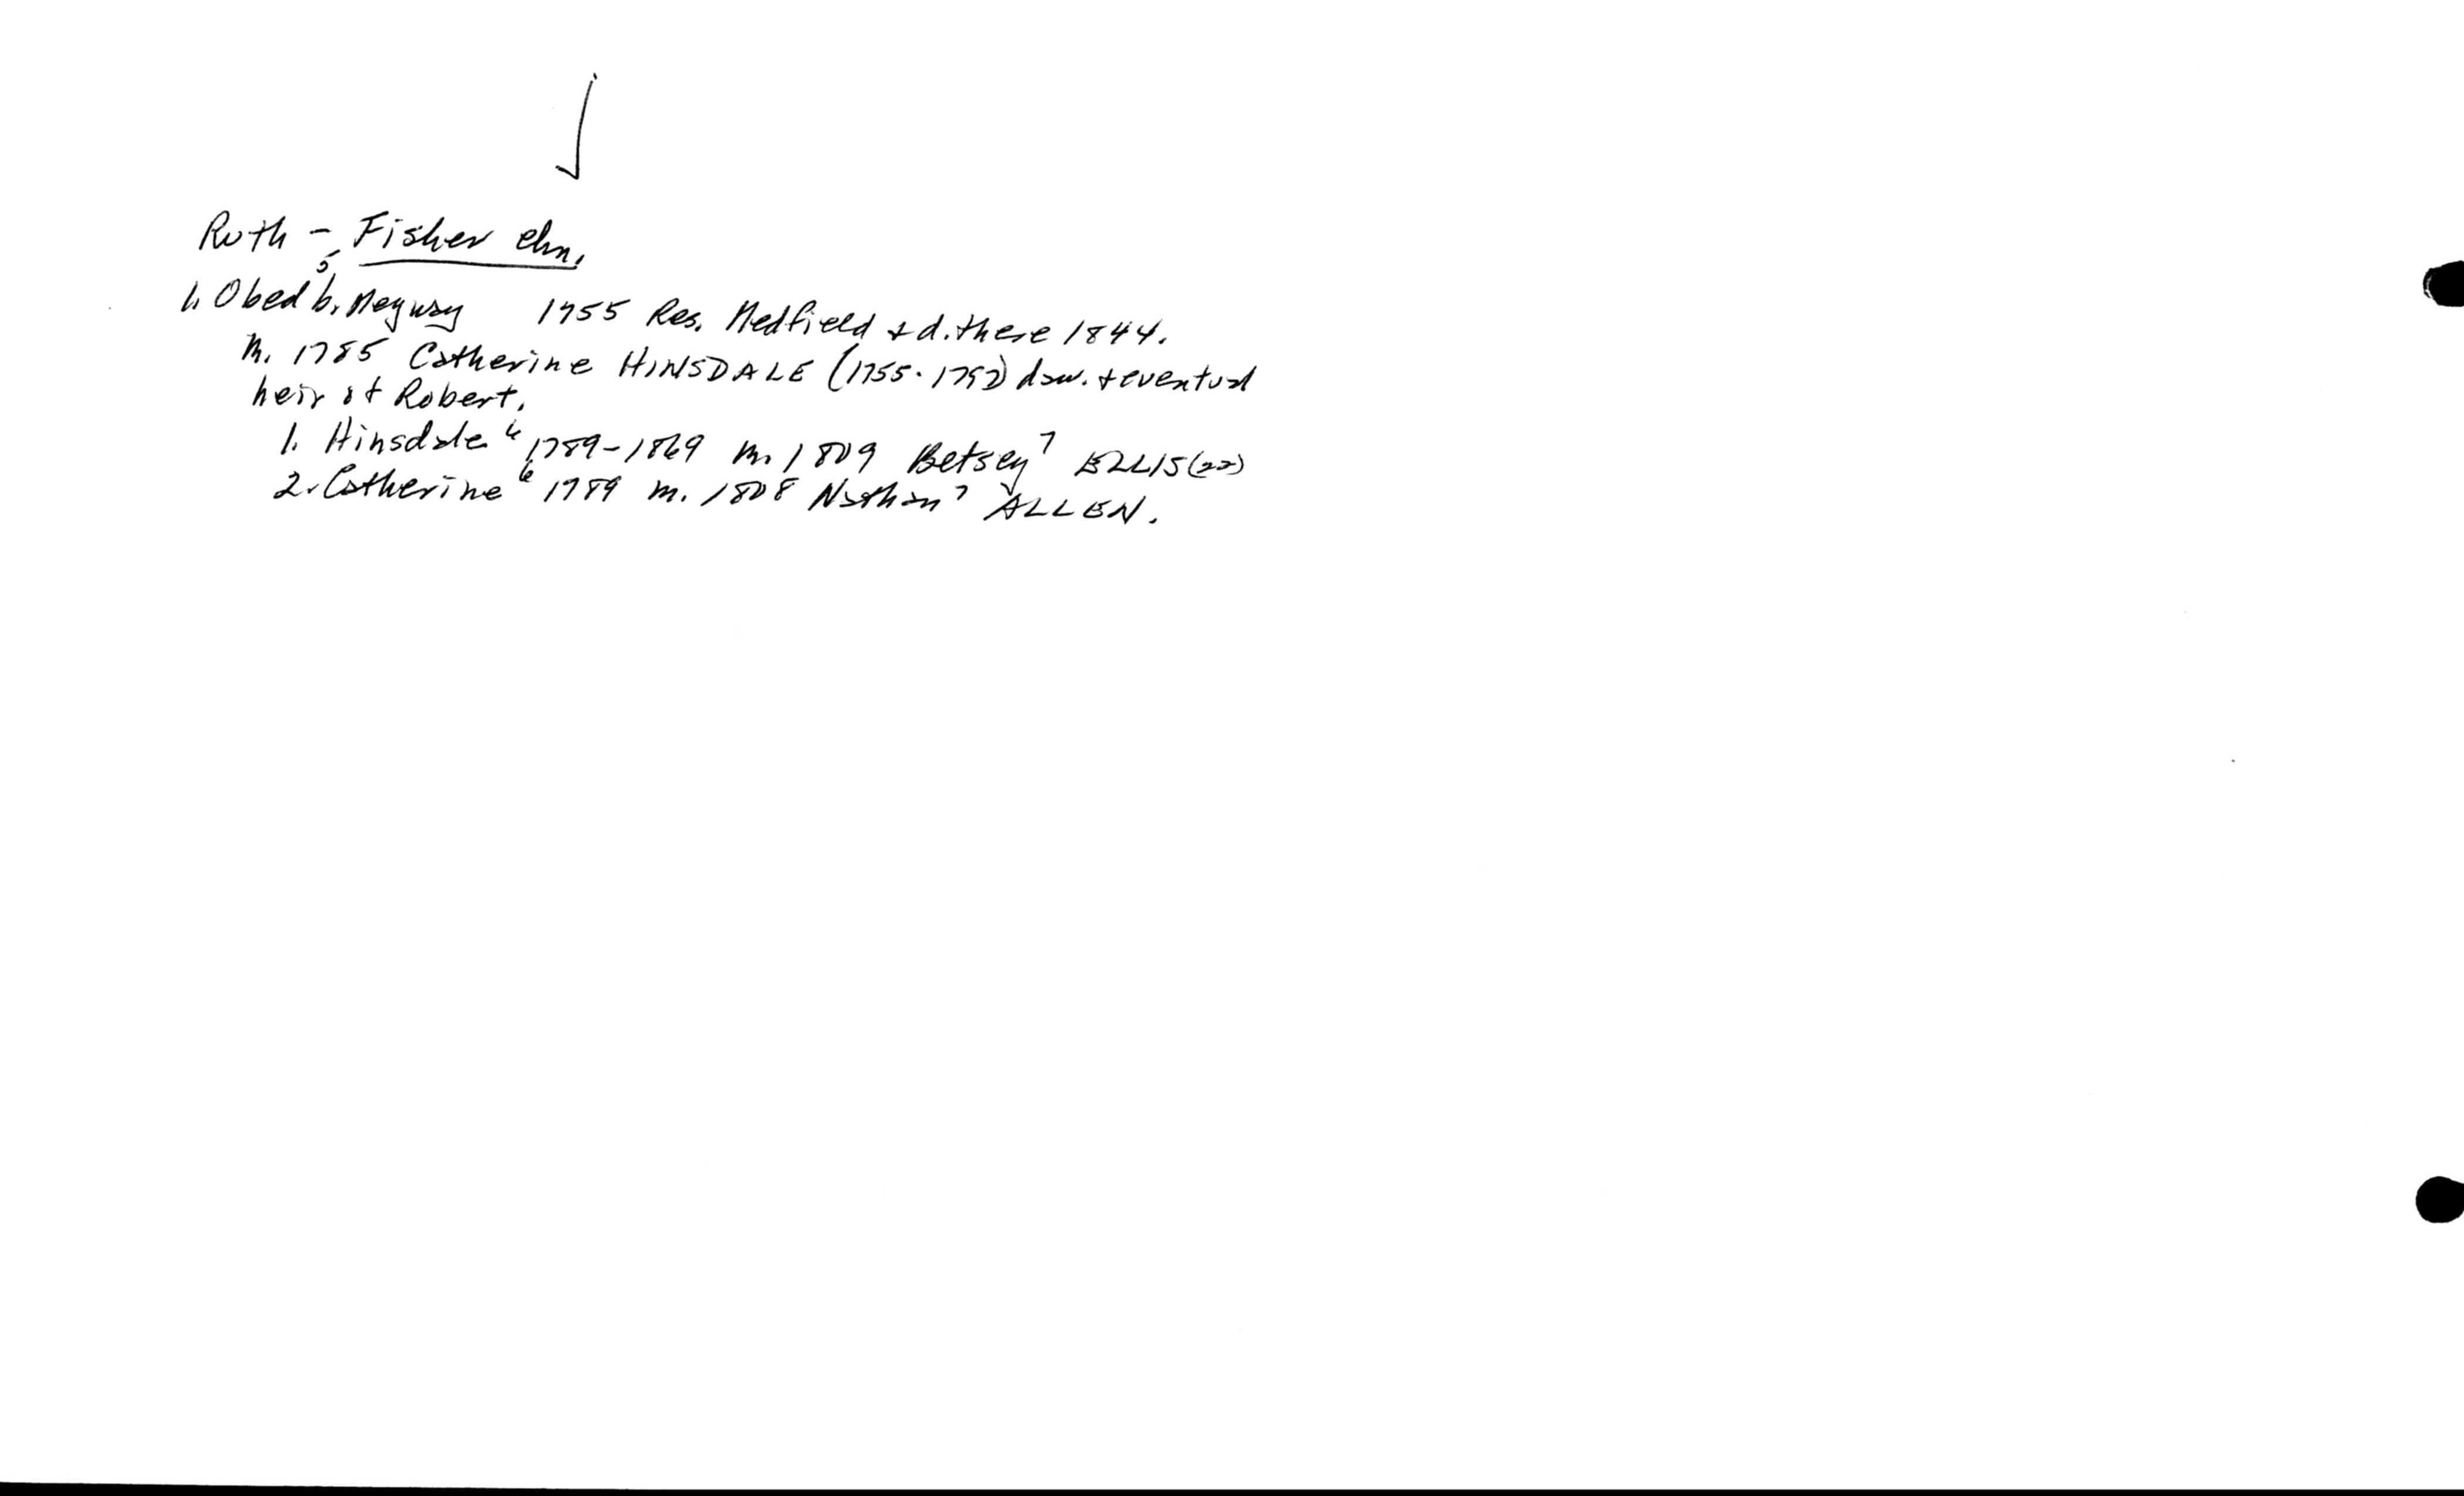 Ruth - Fisher chn.
1. Obed⁵ b. Meqway 1755 Res. Medfield + d. there 1844.
m. 1785 Catherine HINSDALE (1755-1792) dau. + eventual
heir of Robert.
1. Hinsdale⁶ 1789-1869 m. 1809 Betsey⁷ ELLIS (22)
2. Catherine⁶ 1789 m. 1808 Nathan⁷ ALLEN.